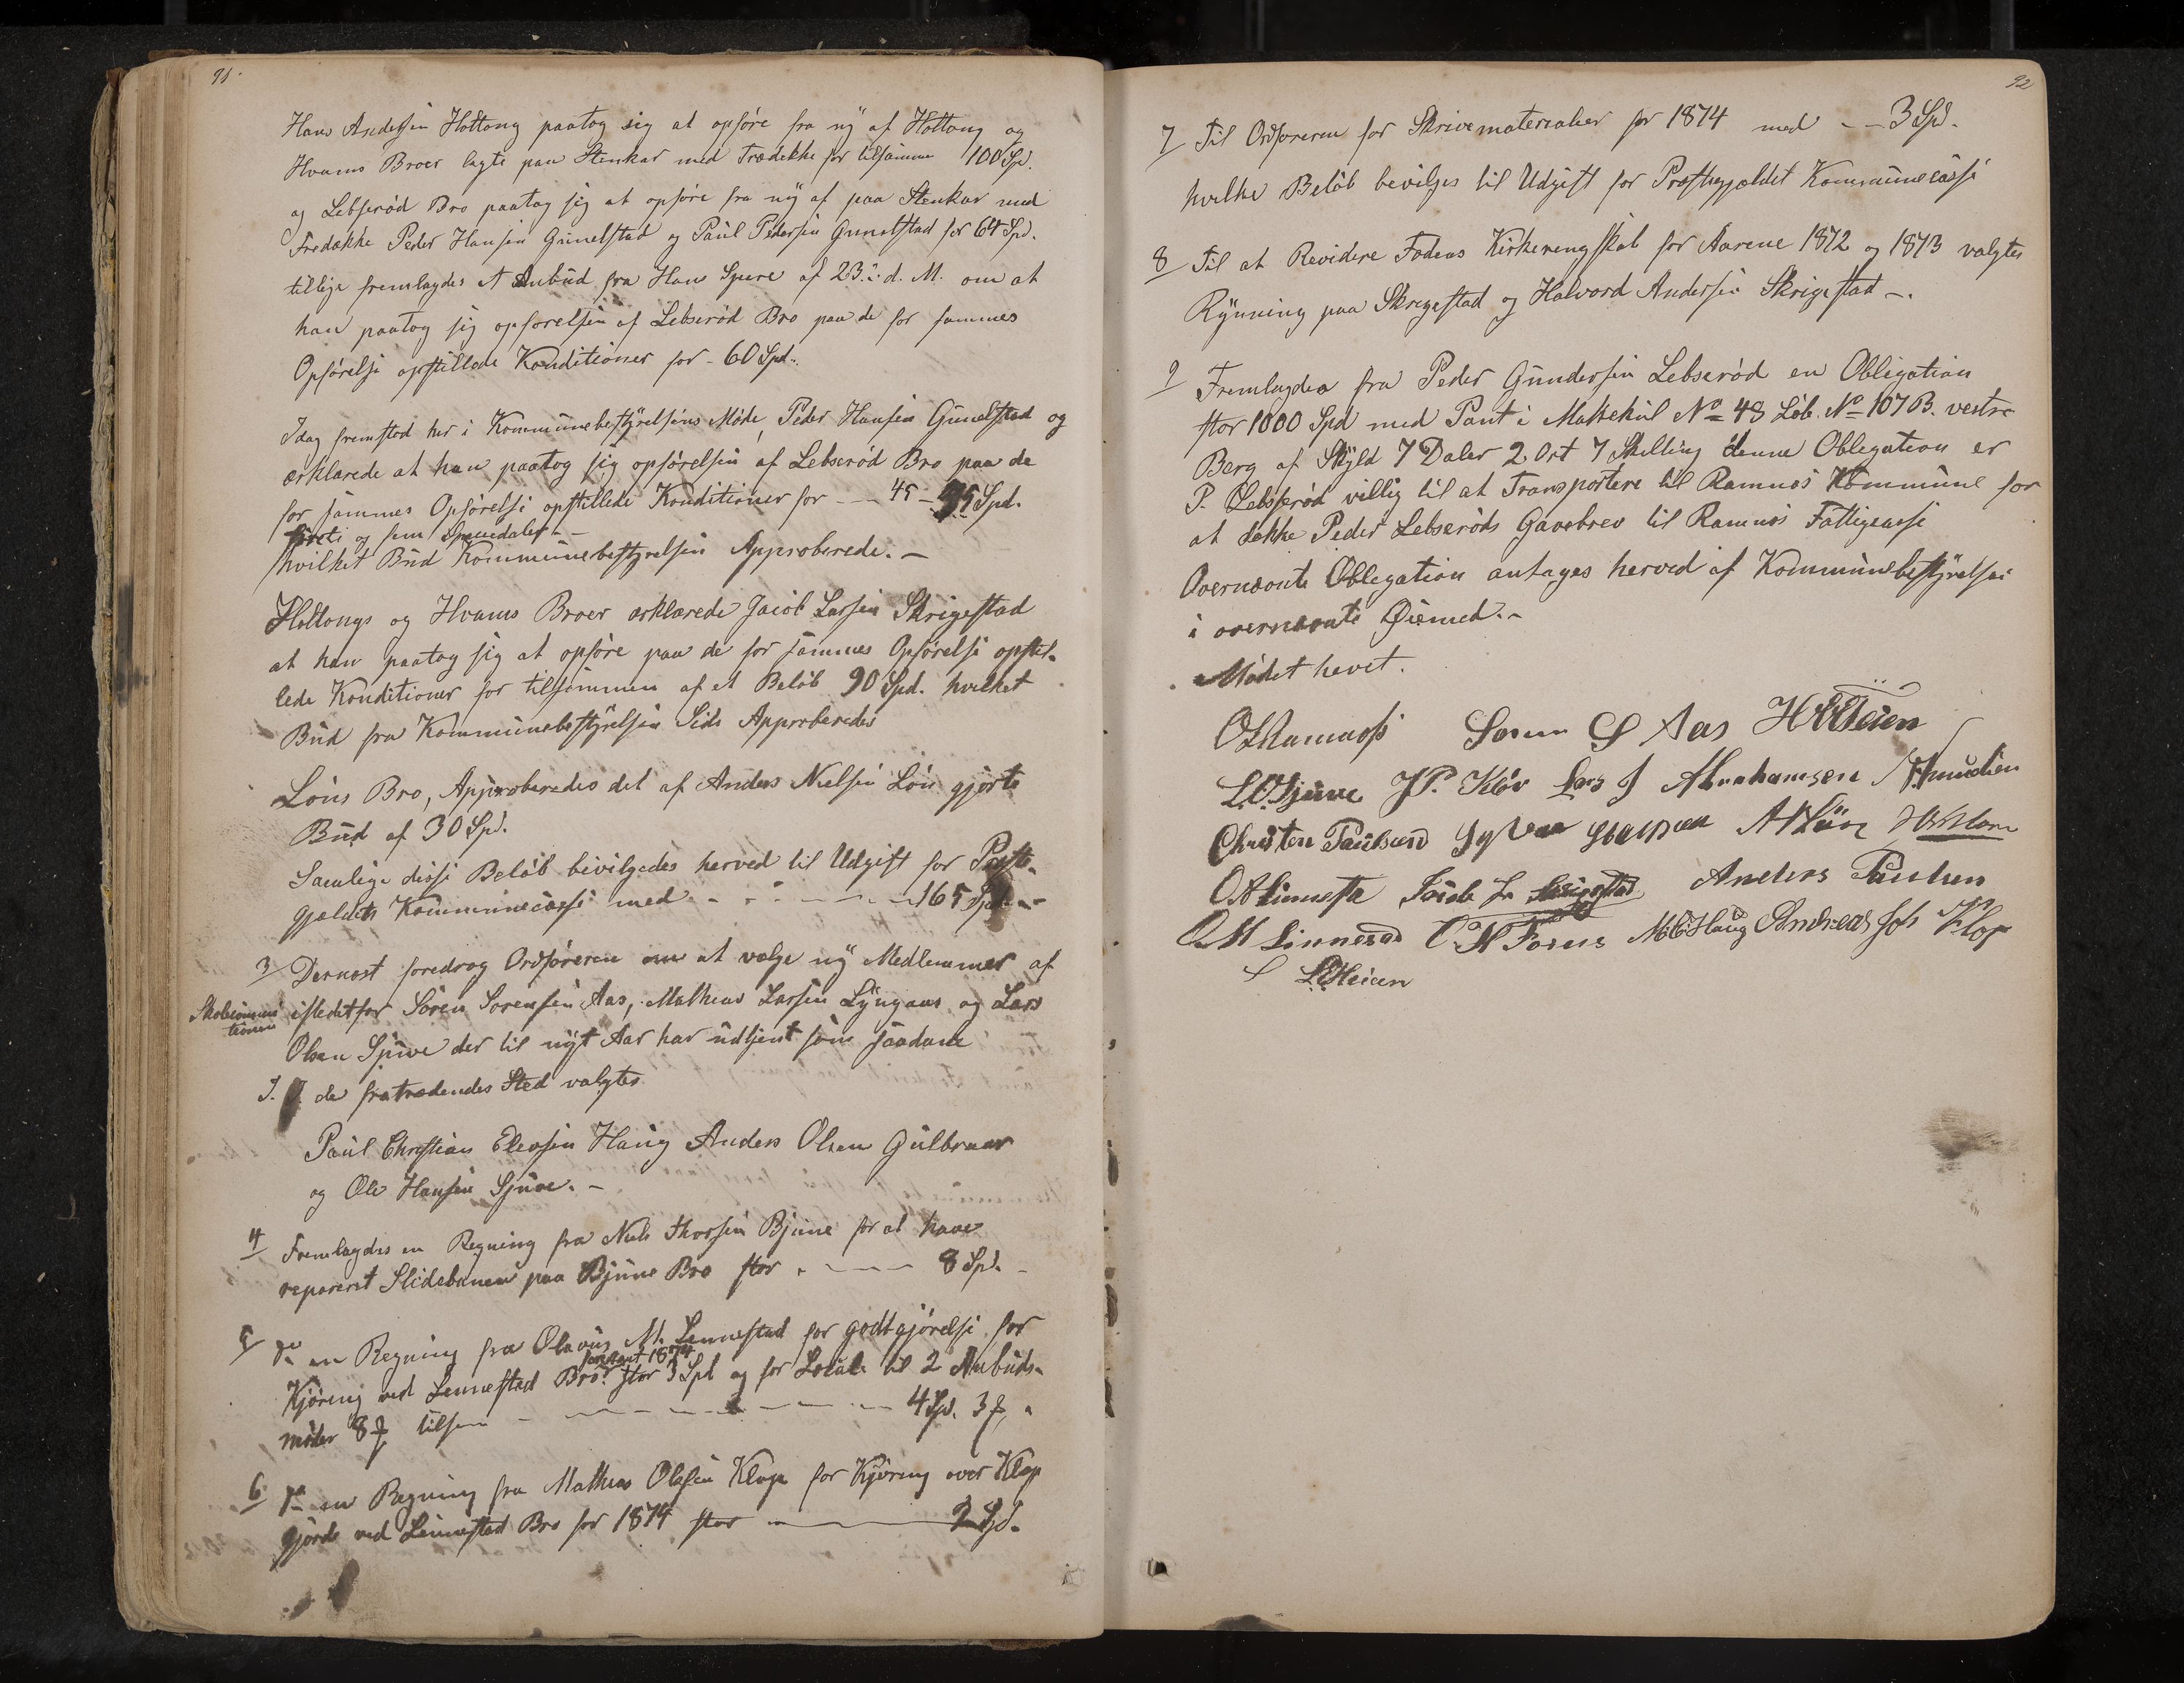 91.
Hans Andersen Holtong paatog sig at opføre fra ny af Holtong og
Hvams Broer lagte paa Stenkar med Trædække for tilsamme 100 Spd.
og Lebserød Bro paatog sig at opføre fra ny af paa Stenkar med
Trædække Peder Hansen Gunelstad og Paul Pedersen Gunelstad for 64 Spd.
tillige fremlagdes et Anbud fra Hans Spere af 23. d. M. om at
han paatog sig opførelsen af Lebserød Bro paa de for sammes
Opførelse opstillede Konditioner for - 60 Spd.
Idag fremstod her i Kommunebestyrelsens Møde, Peder Hansen Gunelstad og
erklærede at han paatog sig opførelsen af Lebserød Bro paa de
for sammes Opførelse opstillede Konditioner for -- 45 - 45 Spd.
førti og fem Speciedaler -
hvilket Bud Kommunebestyrelsen Approberede. -
Holtongs og Hvams Broer erklærede Jacob Larsen Skrigestad
at han paatog sig at opføre paa de for sammes Opførelse opstil-
lede Konditioner for tilsammen af et Beløb 90 Spd. hvilket
Bud fra Kommunebestyrelsen Side Approberedes
Løns Bro, Approberedes det af Anders Nielsen Løn gjorte
Bud af 30 Spd.
Samlige disse Beløb bevilgedes herved til Udgift for Præste-
gjældets Kommunecasse med - - - - - - 165 Spd. -
3/ Dernæst foredrog Ordføreren om at vælge ny Medlemmer af
Skolecommis
tionen istedetfor Søren Sørensen Aas, Mathias Larsen Lyngaas og Lars
Olsen Sjuve der til nyt Aar har udtjent som saadane
I. de fratrædendes Sted valgtes
Paul Christian Elevsen Haug Anders Olsen Gulbraar
og Ole Hansen Sjuve. -
4/ Fremlagdes en Regning fra Niels Thorsen Bjune for at have
repareret Slidebanen paa Bjune Bro stor - - - - 8 Spd. -
5/ do en Regning fra Olavus M. Linnestad for godtgjørelse for
Kjøring ved Linnestad Bro 1874 stor 3 Spd og for Locale til 2 Anbuds-
møder 8 tilsam - - - - - - - - - 4 Spd. 3
6/ do en Regning fra Mathias Olsen Klop for Kjøring over Klop
gjorde ved Linnestad Bro for 1874 stor - - - 2 Spd.
92
7/ Til Ordføreren for Skrivematerialier for 1874 med - - 3 Spd.
hvilke Beløb bevilges til Udgift for Præstegjældet Kommunecasse
8/ Til at Revidere Fodens Kirkerengskab for Aarene 1872 og 1873 valgtes
Rynning paa Skrigestad og Halvord Andersen Skrigestad -.
9/ Fremlagdes fra Peder Gundersen Lebserød en Obligation
stor 1000 Spd med Pant i Mattekul No 48 Løb. No 107 B. vestre
Berg af Skyld 7 Daler 2 Ort 7 Skilling denne Obligation er
P. Lebserød villig til at Transportere til Ramnæs Kommune for
at dække Peder Lebserøds Gavebrev til Ramnæs Fattigcasse
Overnævnte Obligation antages herved af Kommunebestyrelsen
i overnævnte Øiemed. -
Mødet hevet.
Søren S Aas
L.O. Sjuve J.P. Kløv Lars J Abrahamsen
Christen Paulsen
Anders Paulsen
O M Linnestad Andreas Joh Klop